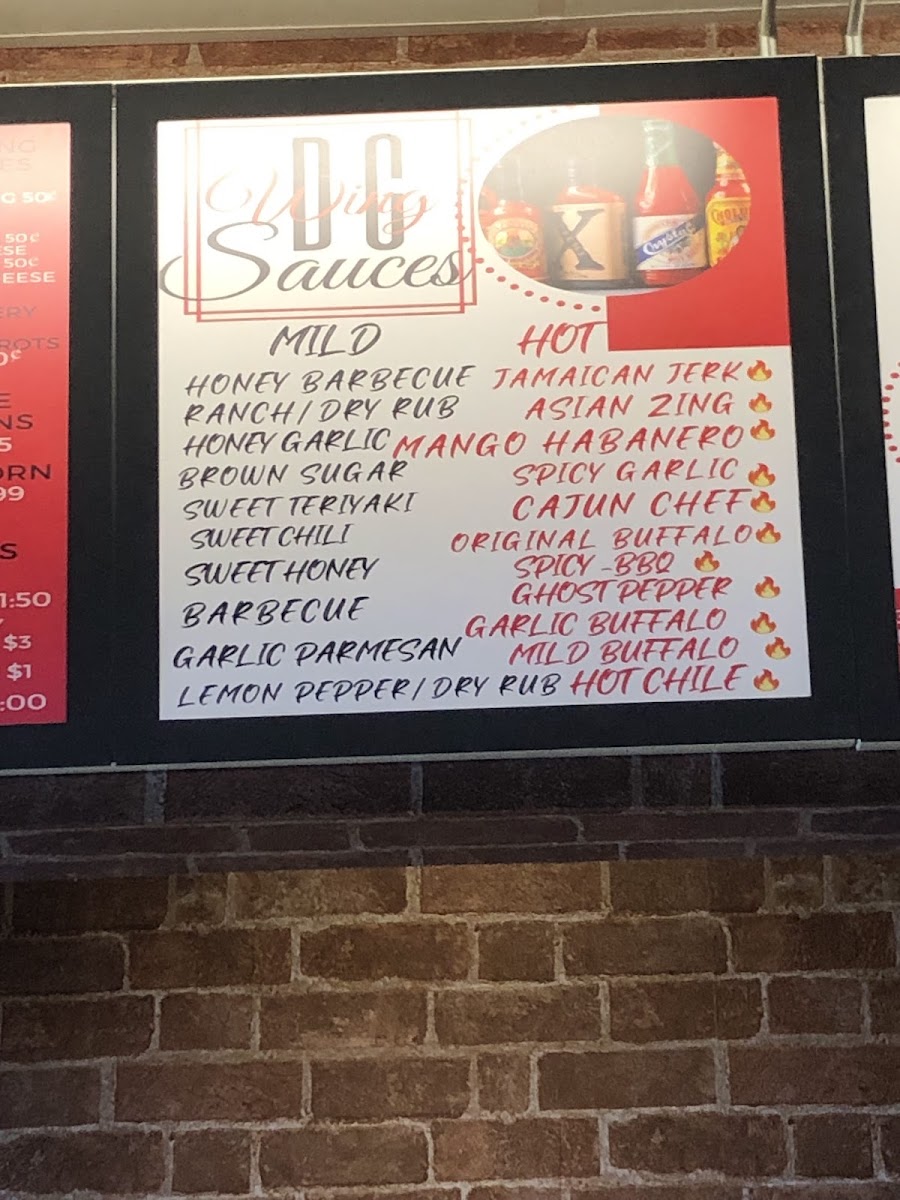 NG
ES
G 50¢
50¢
SE
50¢
EESE
ERY
ROTS
0¢
E
NS
5
ORN
99
S
1:50
$3
$1
:00
DC
Wing
Sauces
X
Crystal
MILD
HONEY BARBECUE
RANCH / DRY RUB
HONEY GARLIC
BROWN SUGAR
SWEET TERIYAKI
SWEET CHILI
SWEET HONEY
BARBECUE
GARLIC PARMESAN
LEMON PEPPER / DRY RUB
HOT
JAMAICAN JERK🔥
ASIAN ZING 🔥
MANGO HABANERO🔥
SPICY GARLIC 🔥
CAJUN CHEF🔥
ORIGINAL BUFFALO🔥
SPICY -BBQ 🔥
GHOST PEPPER 🔥
GARLIC BUFFALO 🔥
MILD BUFFALO 🔥
HOT CHILE 🔥